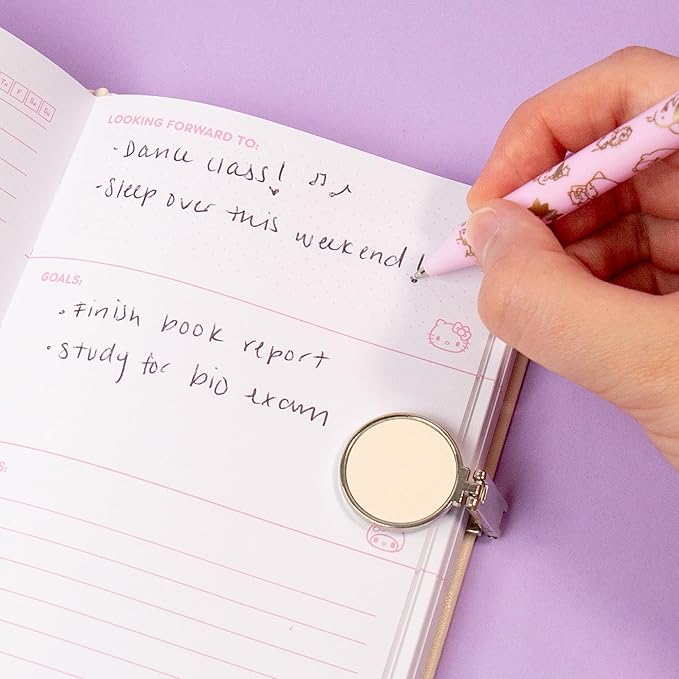 Th F Sa Su
LOOKING FORWARD TO:
· Dance class!
- Sleep over this weekend!
GOALS:
· Finish book report
· Study for bio exam
S: